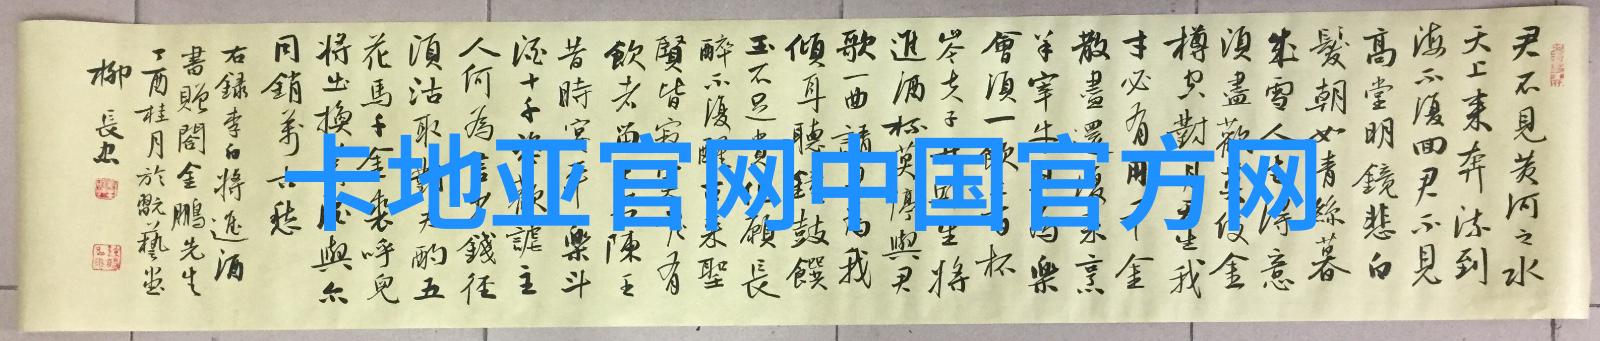 君不見黄河之水
天上来奔流到
海不復回君不見
高堂明鏡悲白
髮朝如青絲暮
成雪人生得意
須盡歡莫使金
樽空對月天生我
才必有用千金
散盡還復来烹
羊宰牛且為樂
會須一飲三百杯
岑夫子丹丘生將
進酒杯莫停與君
歌一曲請君為我
傾耳聽鼓饌
玉不足貴但願長
醉不復醒古来聖
賢皆寂寞惟有
飲者留其名陳王
昔時宴平樂斗
酒十千恣歡謔主
人何為言少錢徑
須沽取對君酌五
花馬千金裘呼兒
將出換美酒與尔
同銷萬古愁
右録李白將進酒
書贈閣金鵬先生
丁酉桂月於翫藝堂
柳長忠
卡地亚官网中国官方网